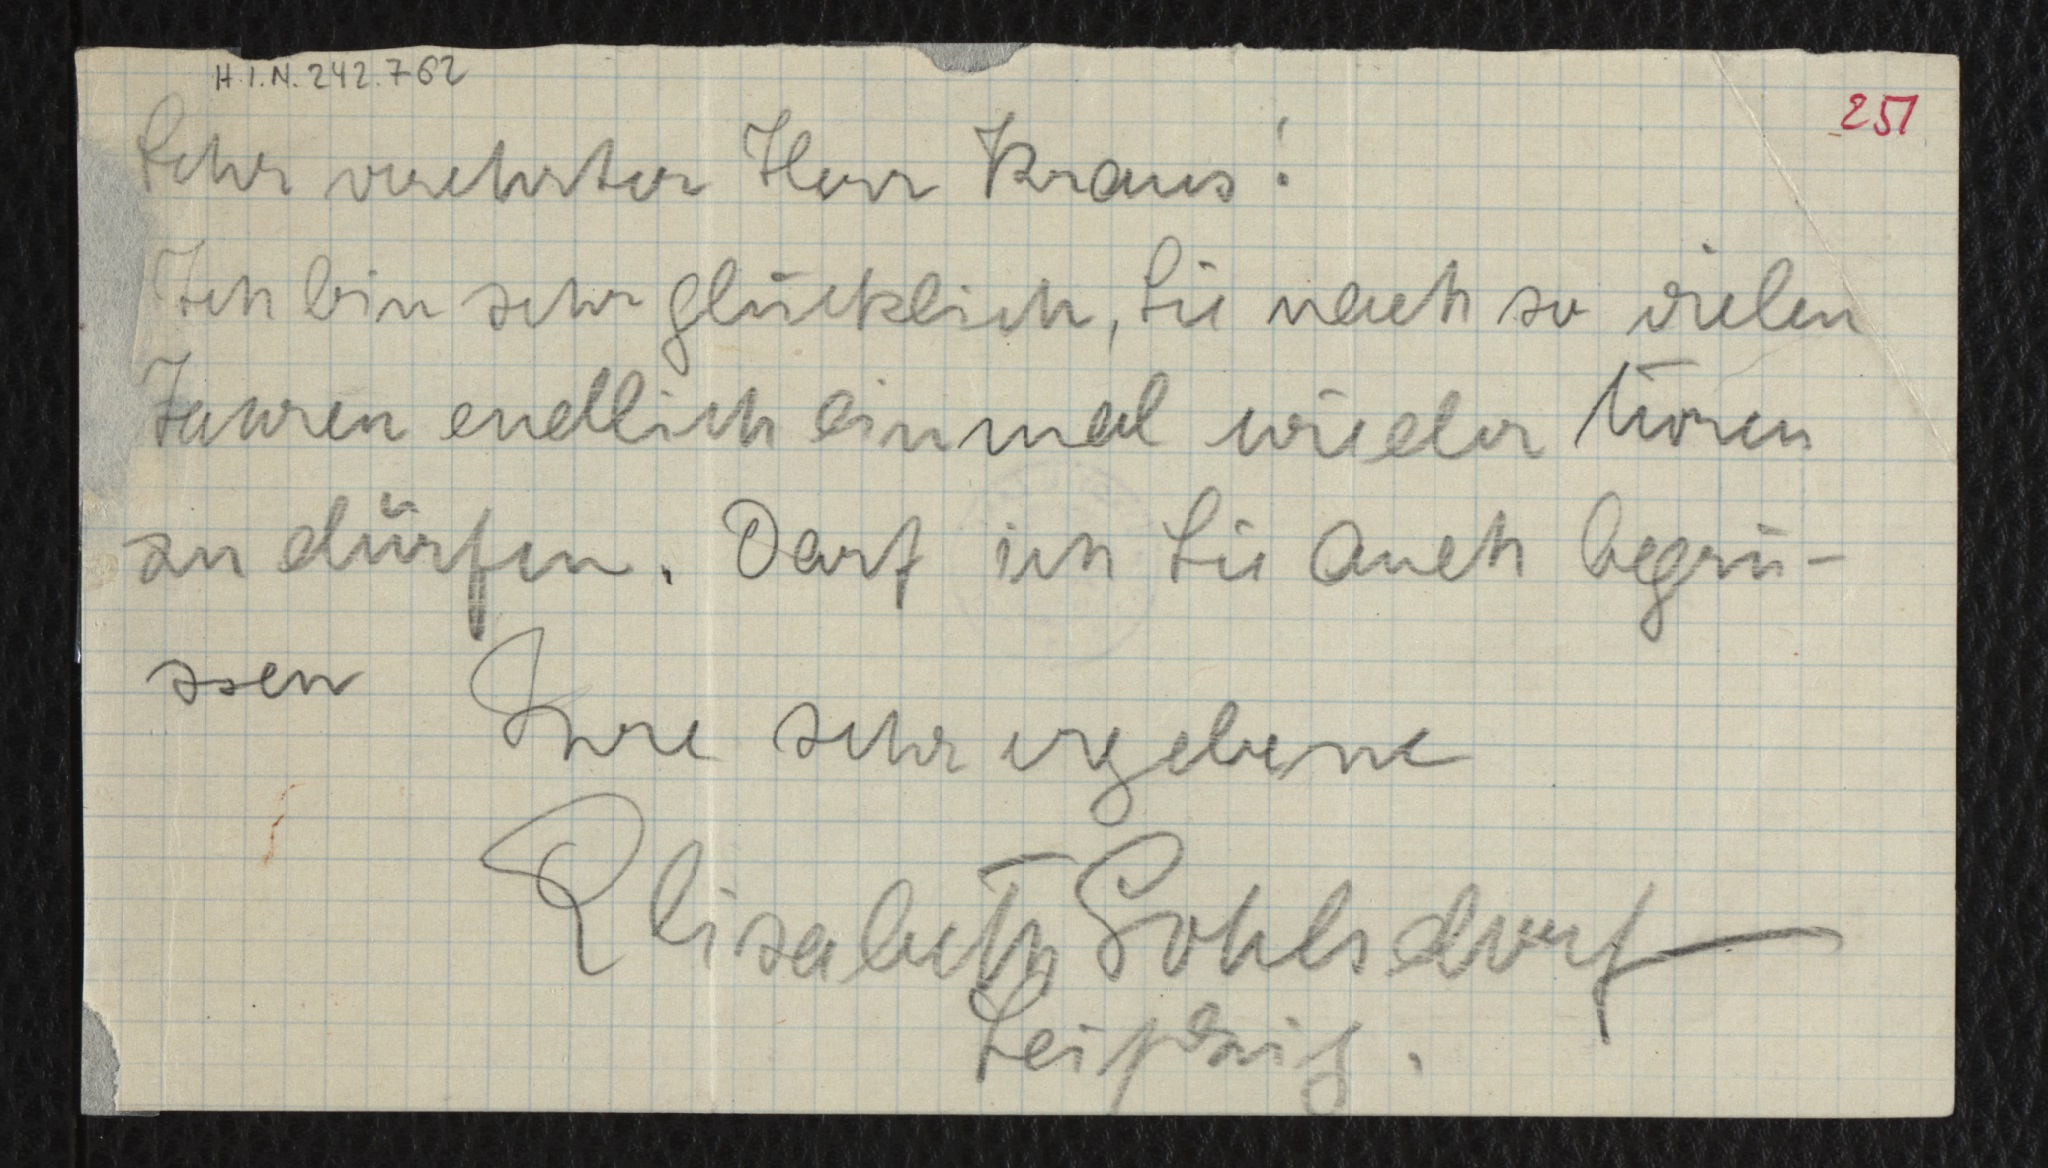 H.I.N. 242.762
251
Sehr verehrter Herr Kraus!
Ich bin sehr glücklich, Sie nach so vielen
Jahren endlich einmal wieder hören
zu dürfen. Darf ich Sie auch begrü-
ssen Ihre sehr ergebene
Elisabeth Gohlsdorf
Leipzig.